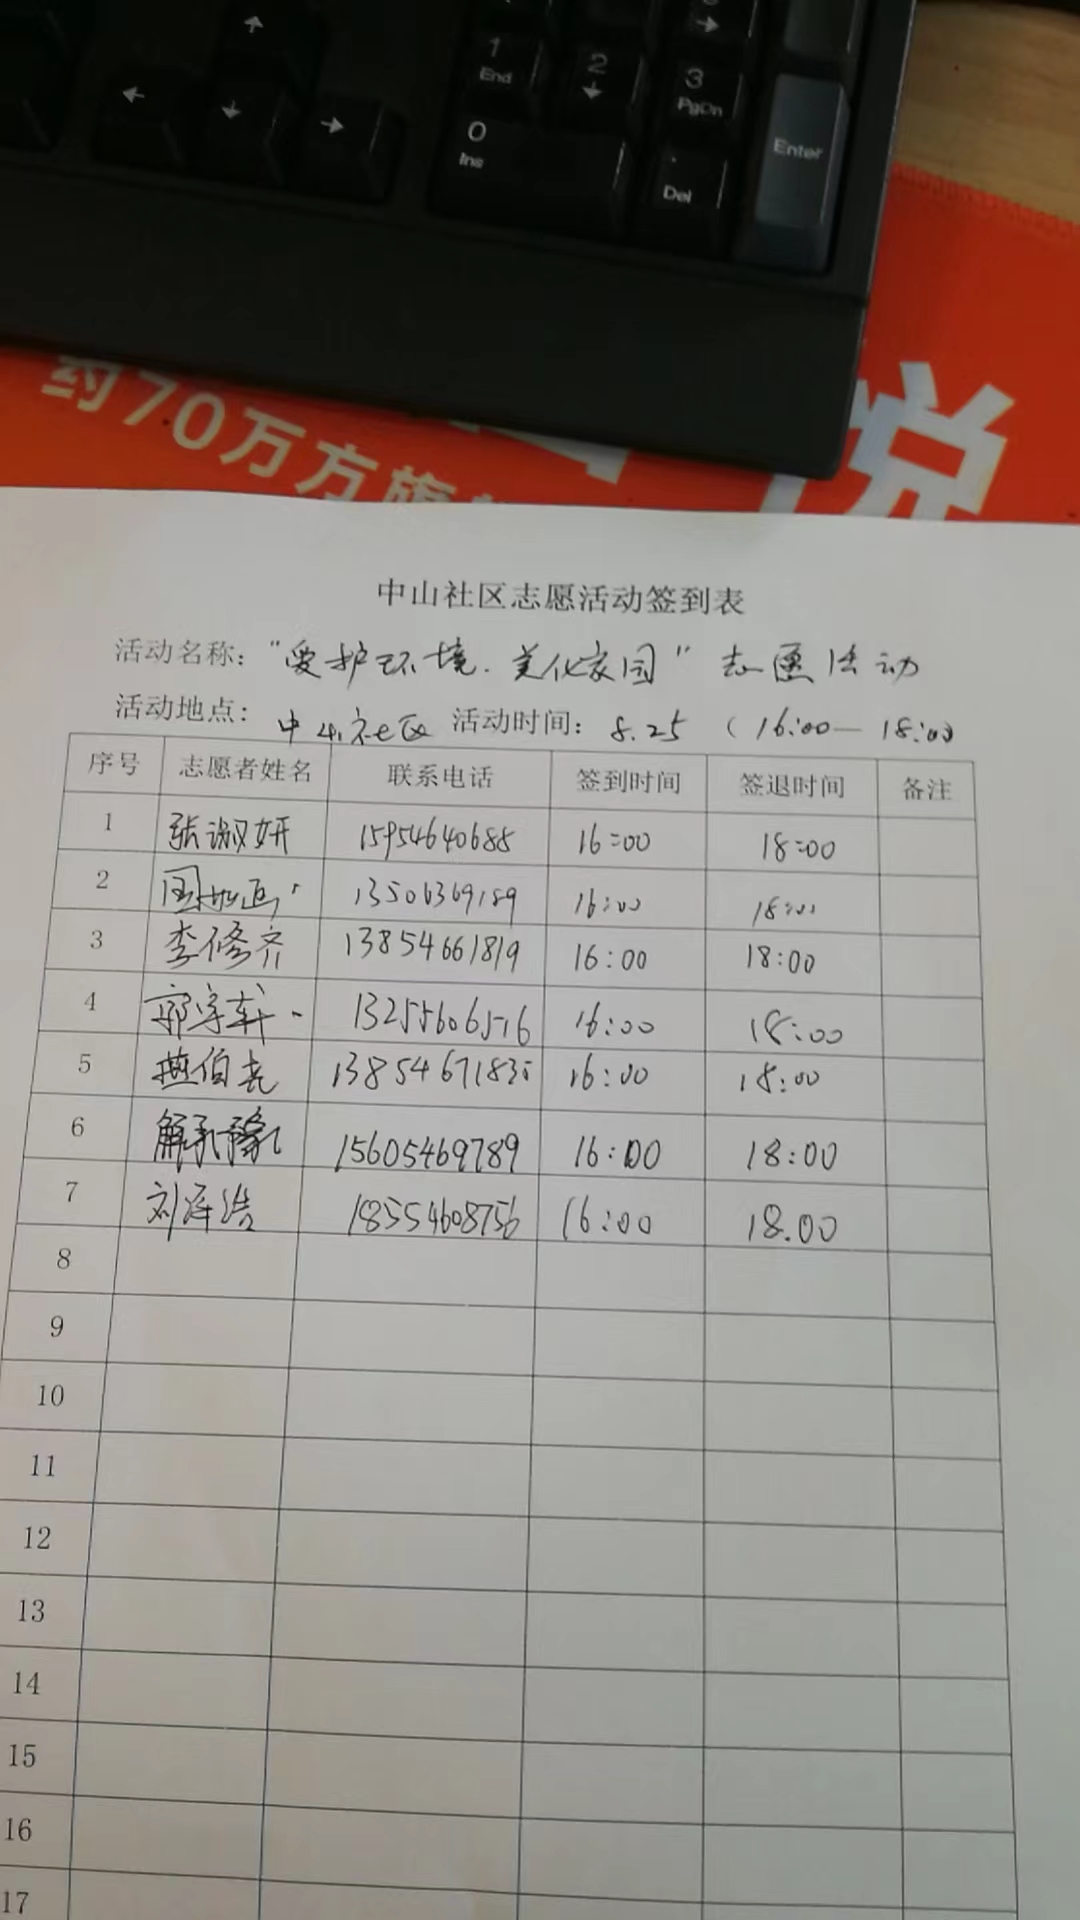 ↑
← ↓ →
1 End 2 ↓ 3 PgDn →
0 Ins Del Enter
约70万方旗
悦
中山社区志愿活动签到表
活动名称："爱护环境.美化家园"志愿活动
活动地点：中山社区 活动时间：8.25 (16:00—18:00)
序号 志愿者姓名 联系电话 签到时间 签退时间 备注
1 张淑妍 15954640688 16:00 18:00
2 13506369189 16:00 18:00
3 李修齐 13854661819 16:00 18:00
4 郭宇轩 13255606516 16:00 18:00
5 燕伯尧 1385467183 16:00 18:00
6 解承豫 15605469789 16:00 18:00
7 刘泽浩 18554608756 16:00 18.00
8
9
10
11
12
13
14
15
16
17